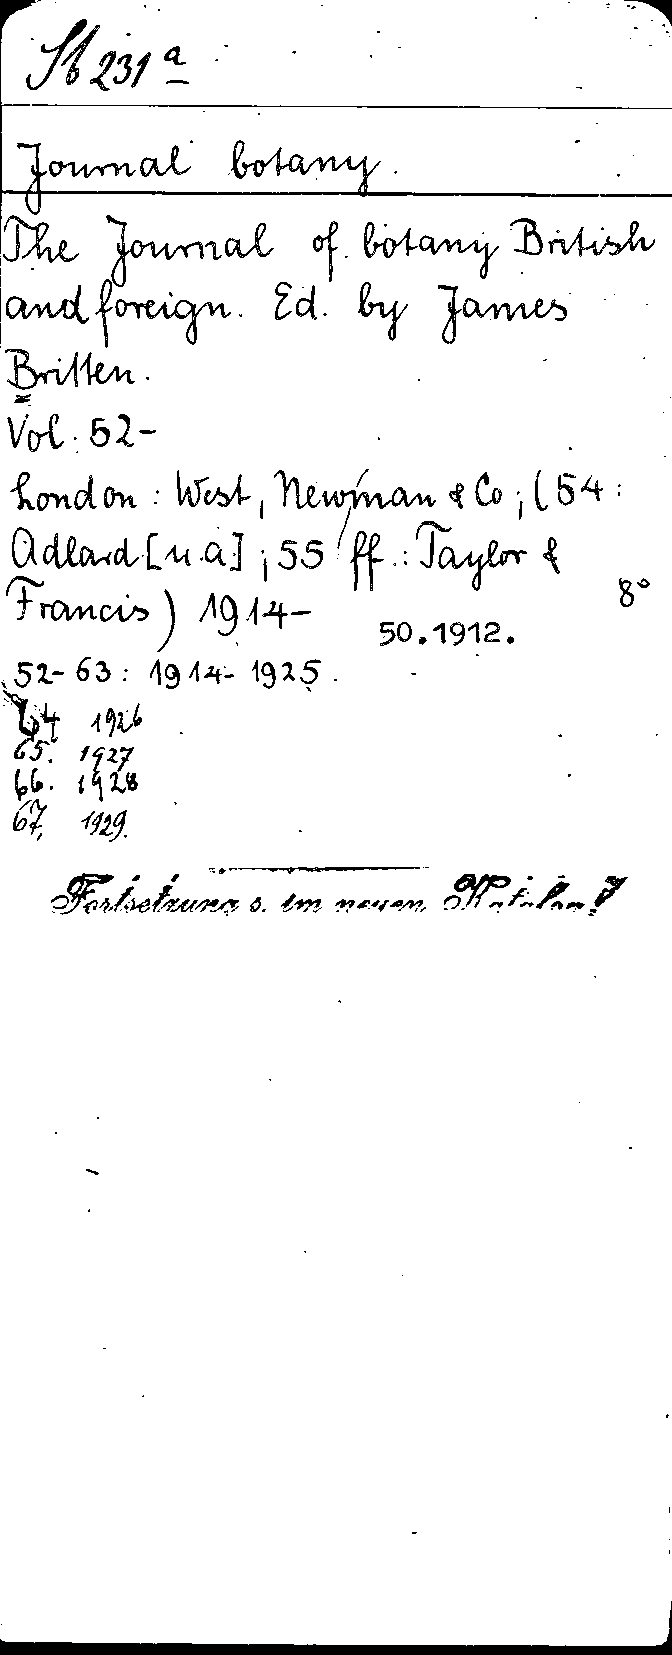 Sb 231 a
Journal botany.
The Journal of botany British
and foreign. Ed. by James
Britten.
Vol. 52-
London: West, Newman & Co; (54:
Adlard [u.a]; 55 ff.: Taylor &
Francis) 1914- 8°
50.1912.
52-63: 1914-1925.
64 1926
65. 1927
66. 1928
67. 1929.
Fortsetzung s. im neuen Katalog!